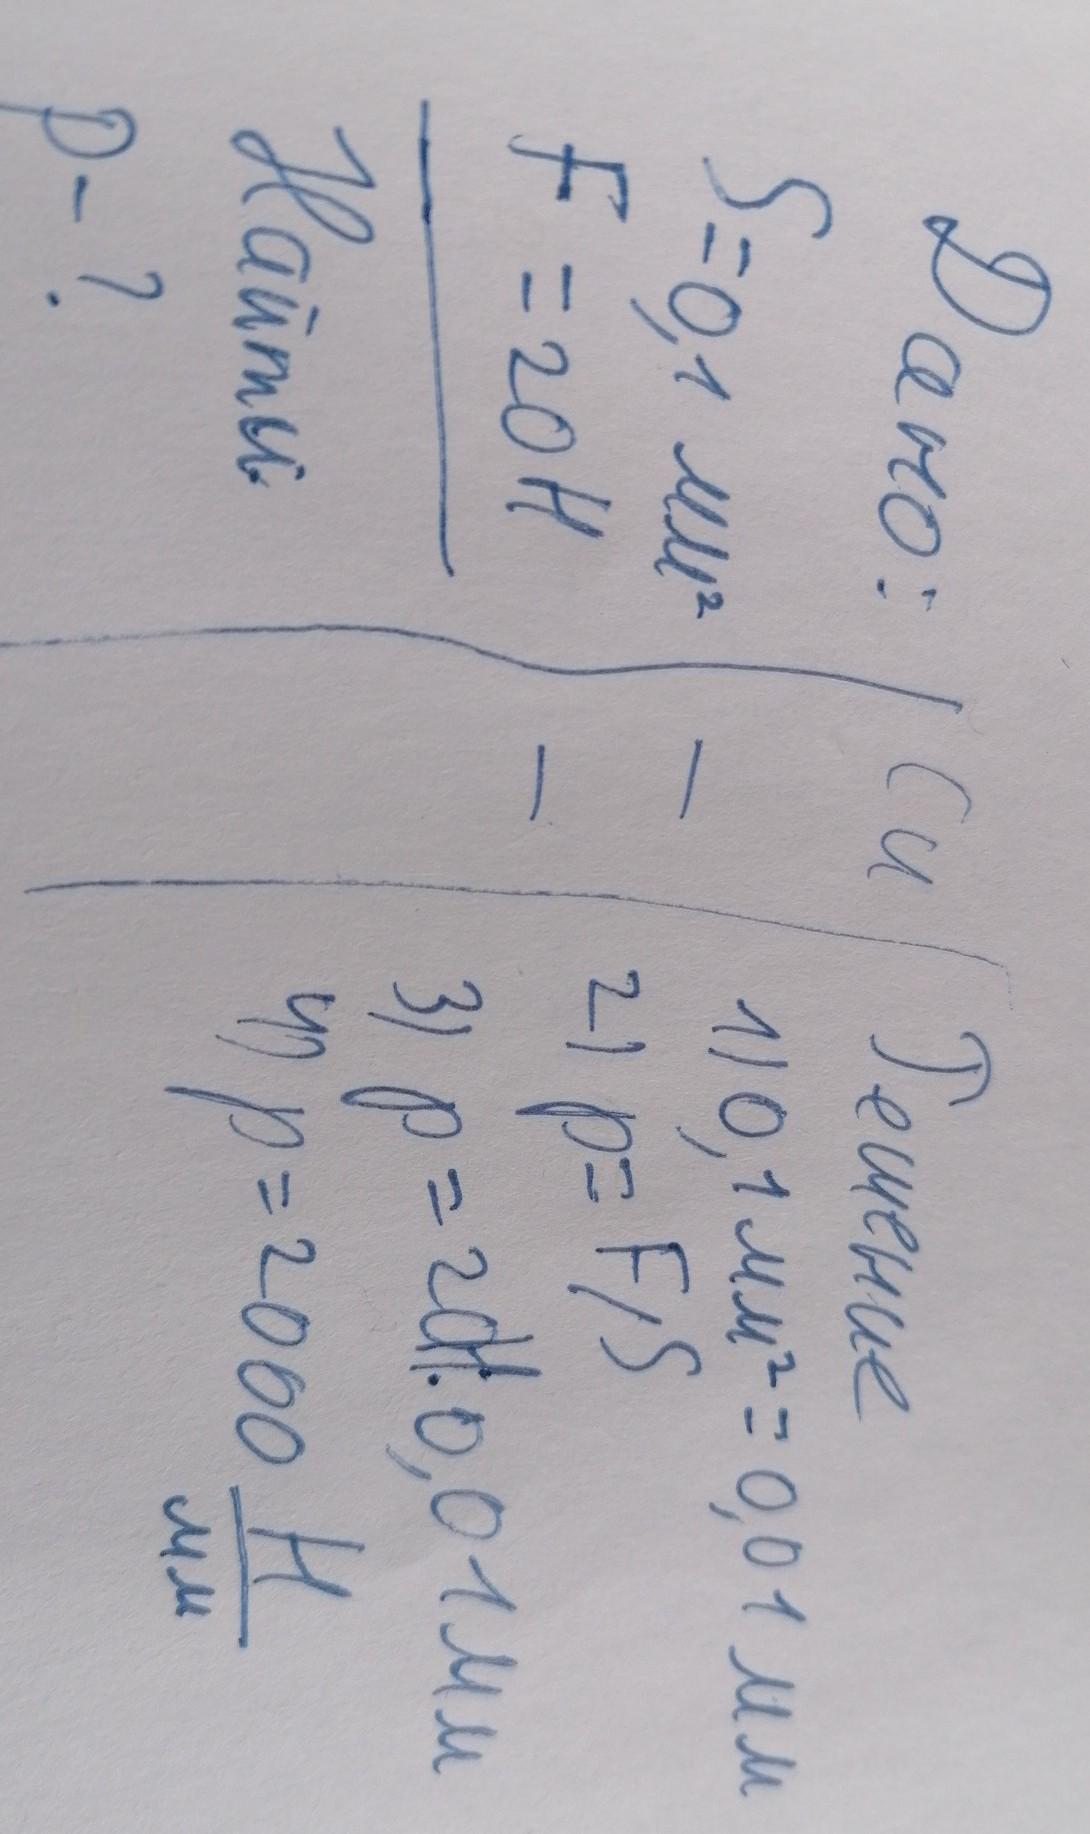 Дано:
S=0,1 мм²
F=20Н
Найти:
p-?
Си
-
-
Решение
1) 0,1мм²=0,01мм
2) p=F/S
3) p=20Н:0,01мм
4) p=2000 Н/мм